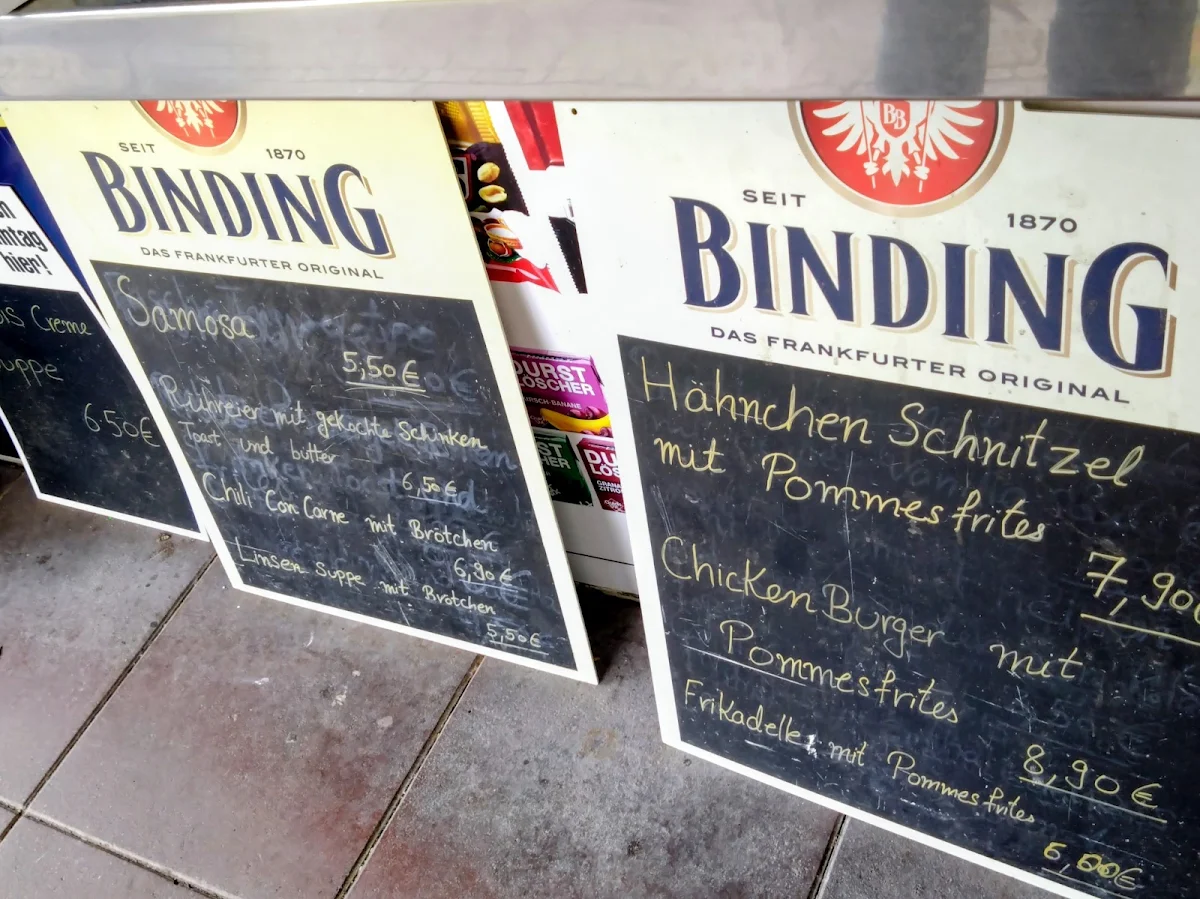 ntag
hier!
Creme
uppe
6.50€
SEIT 1870
BINDING
DAS FRANKFURTER ORIGINAL
Samosa
5,50€
Rühreier mit gekochte Schinken
Toast und butter
6,50€
Chili Con Carne mit Brötchen
6,90€
Linsen Suppe mit Brötchen
5,50€
DURST
LÖSCHER
BB
SEIT 1870
BINDING
DAS FRANKFURTER ORIGINAL
Hähnchen Schnitzel
mit Pommes frites
7,90
Chicken Burger mit
Pommesfrites
8,90€
Frikadelle mit Pommes frites